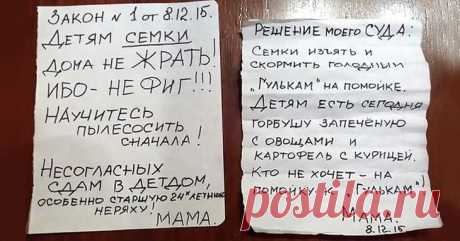 ЗАКОН N 1 от 8.12.15.
ДЕТЯМ СЕМКИ
ДОМА НЕ ЖРАТЬ!
ИБО - НЕ ФИГ!!!
НАУЧИТЕСЬ
ПЫЛЕСОСИТЬ
СНАЧАЛА!
НЕСОГЛАСНЫХ
СДАМ В ДЕТДОМ,
ОСОБЕННО СТАРШУЮ 24х ЛЕТНЮЮ
НЕРЯХУ!
МАМА.
РЕШЕНИЕ МОЕГО СУДА:
СЕМКИ ИЗЪЯТЬ И
СКОРМИТЬ ГОЛОДНЫМ
„ГУЛЬКАМ" НА ПОМОЙКЕ.
ДЕТЯМ ЕСТЬ СЕГОДНЯ
ГОРБУШУ ЗАПЕЧЁНУЮ
С ОВОЩАМИ И
КАРТОФЕЛЬ С КУРИЦЕЙ.
КТО НЕ ХОЧЕТ - НА
ПОМОЙКУ К „ГУЛЬКАМ"!
МАМА.
8.12.15
postila.ru